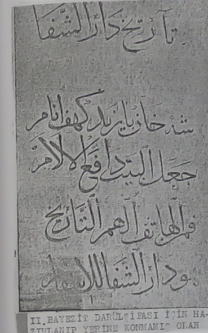 تأريخ دار الشفا
شد خان بايزيد كهف انام
جعل البيت دافع الآلام
قم الهاتف الهم التاريخ
هو دار الشفا للاسقام
II.BAYEZİT DARÜLŞİFASI İÇİN HA-
ZIRLANIP YERİNE KONMAMIŞ OLAN